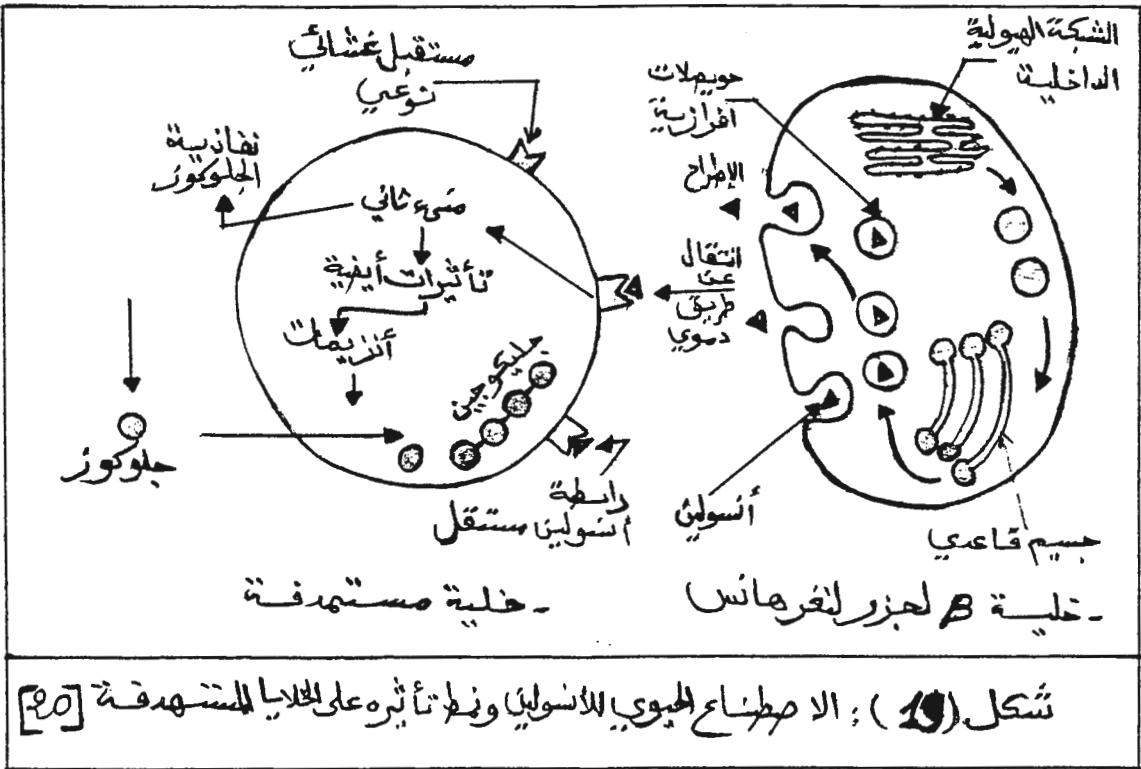 الشبكة الهيولية
الداخلية
حويصلات
افرازية
الإطراح
انتقال
عن
طريق
دموي
أنسولين
جسيم قاعدي
- خلية β لجزر لنغرهانس
مستقبل غشائي
نوعي
نفاذية
الجلوكوز
منبىء ثاني
تأثيرات أيضية
أنزيمات
جليكوجين
جلوكوز
رابطة
أنسولين مستقبل
- خلية مستهدفة
شكل (19) : الاصطناع الحيوي للأنسولين ونمط تأثيره على الخلايا المستهدفة [20]